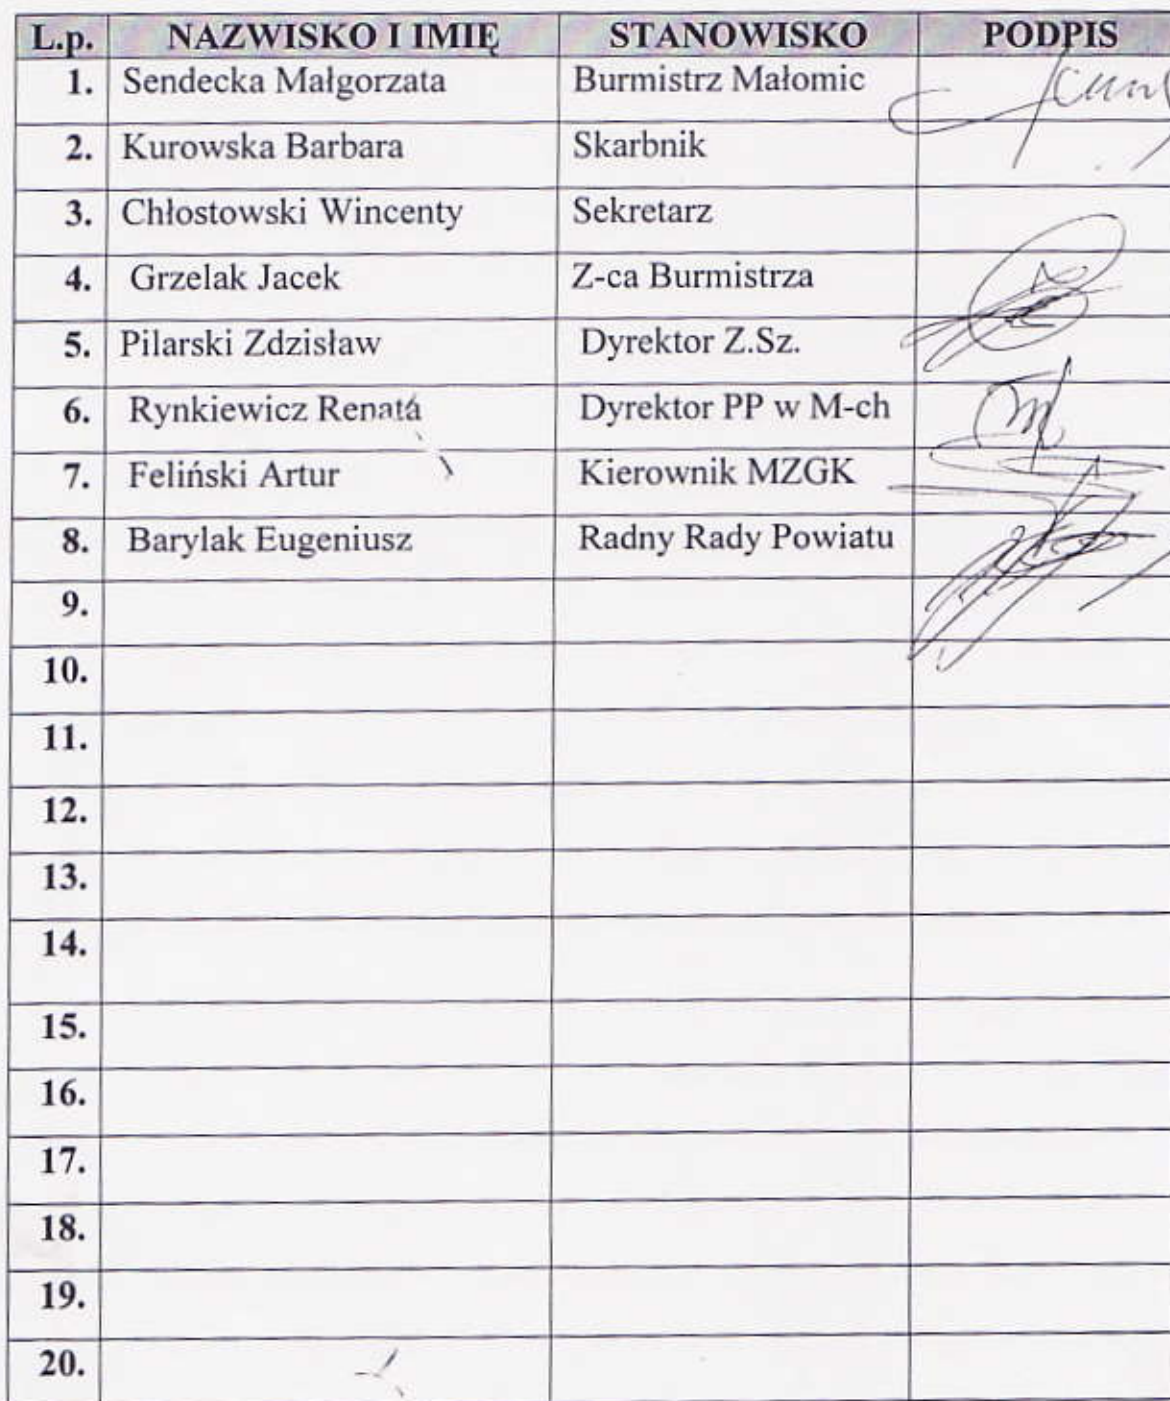 L.p. NAZWISKO I IMIĘ STANOWISKO PODPIS
1. Sendecka Małgorzata Burmistrz Małomic
2. Kurowska Barbara Skarbnik
3. Chłostowski Wincenty Sekretarz
4. Grzelak Jacek Z-ca Burmistrza
5. Pilarski Zdzisław Dyrektor Z.Sz.
6. Rynkiewicz Renata Dyrektor PP w M-ch
7. Feliński Artur Kierownik MZGK
8. Barylak Eugeniusz Radny Rady Powiatu
9.
10.
11.
12.
13.
14.
15.
16.
17.
18.
19.
20.